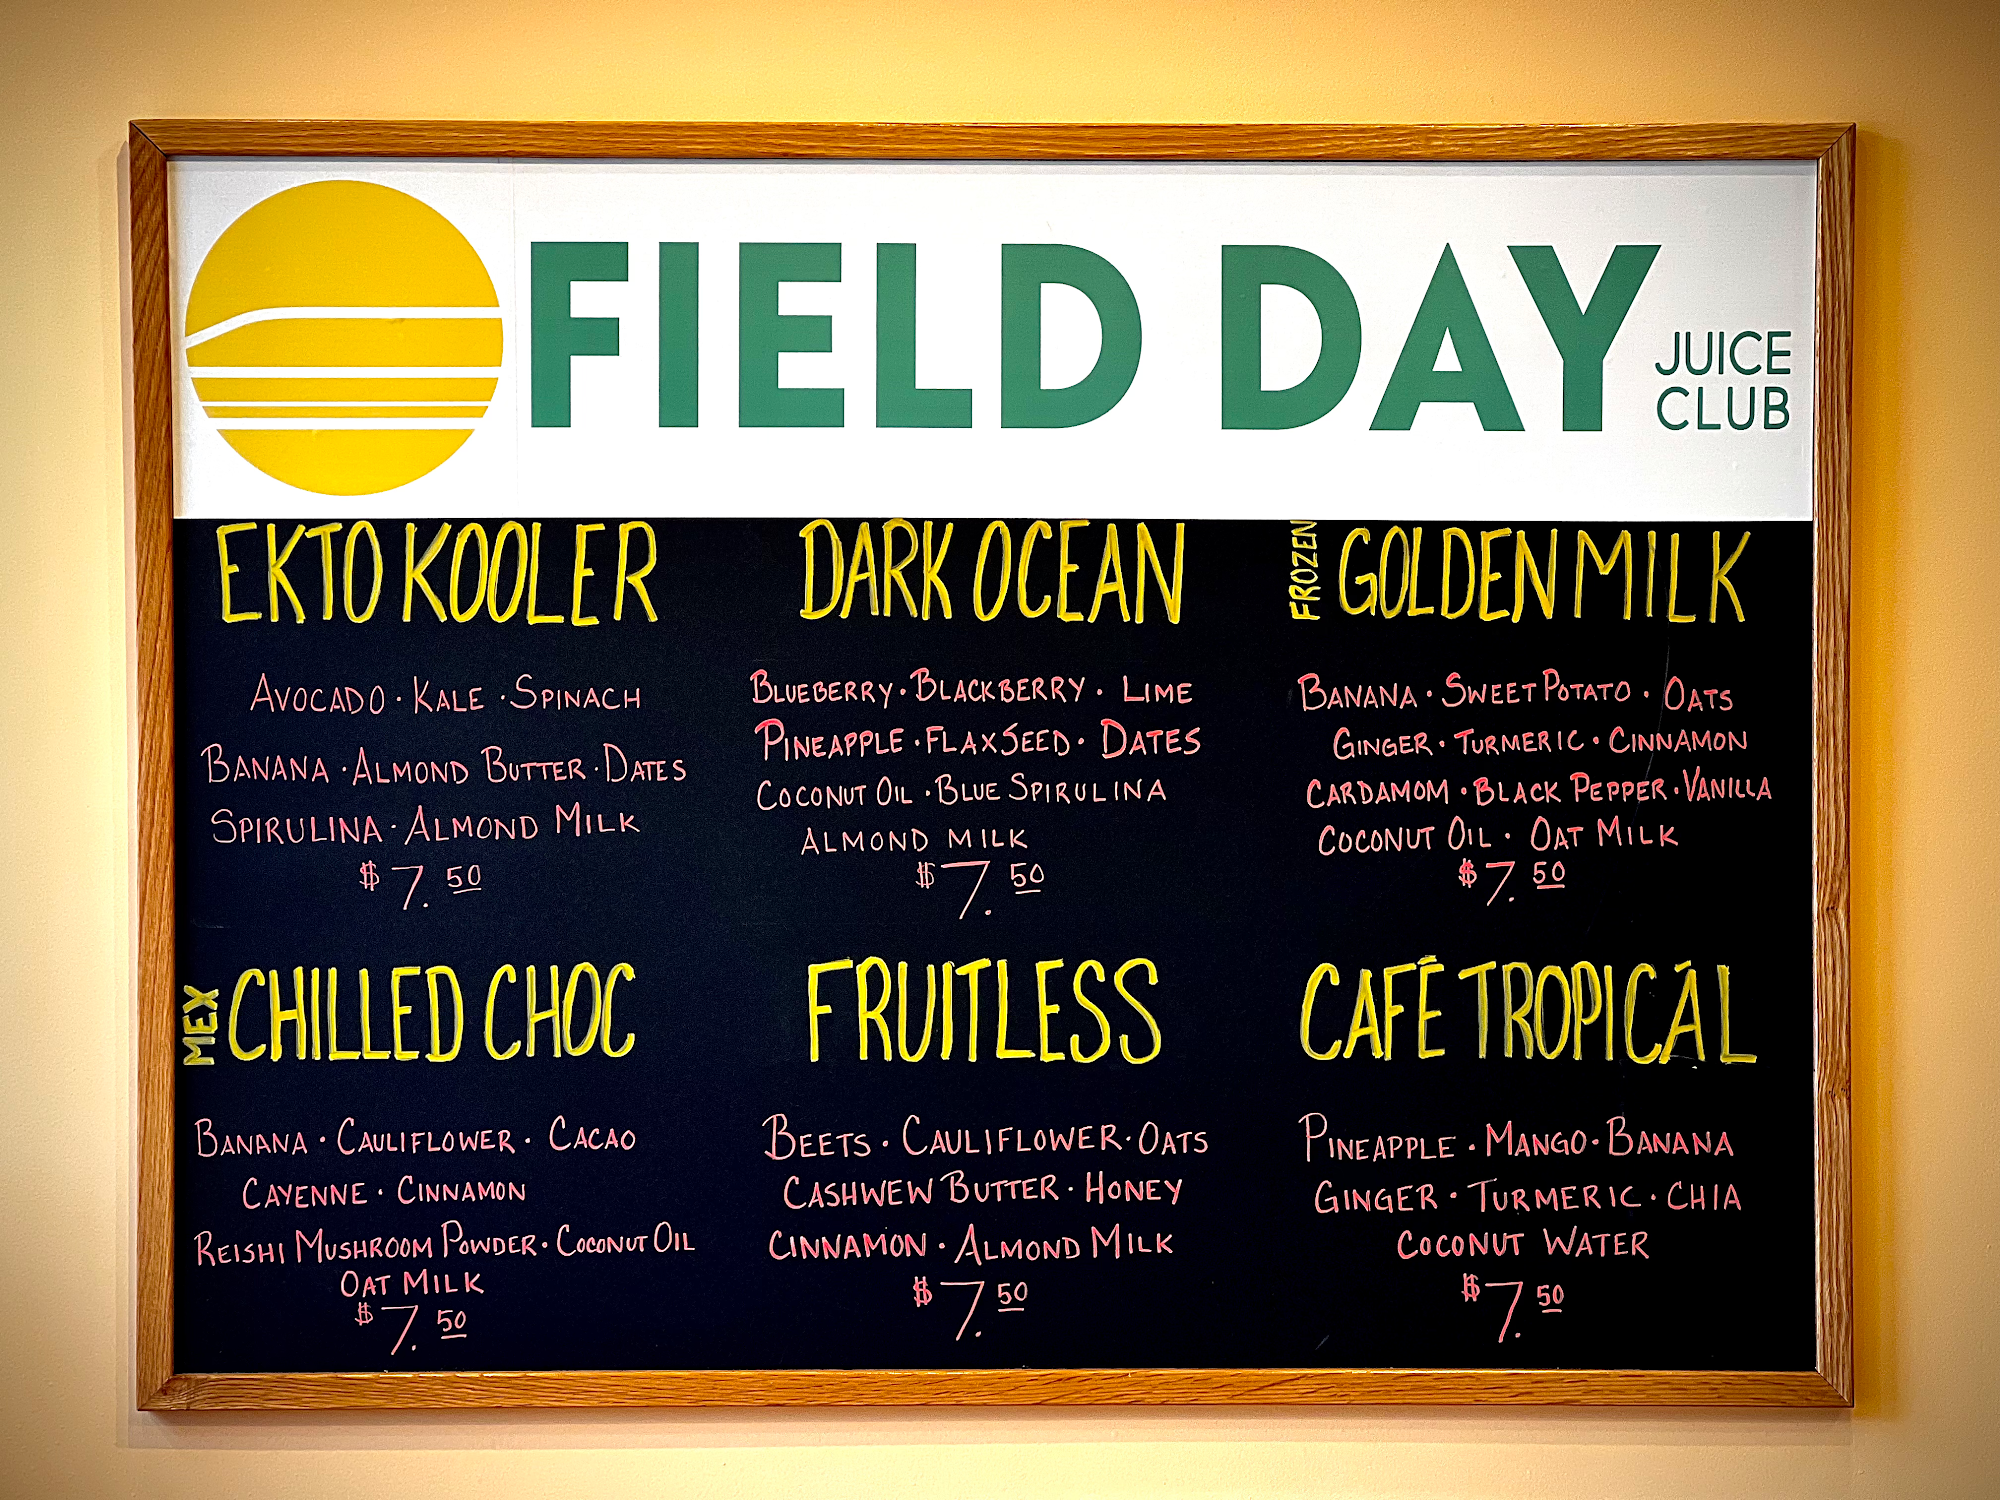 FIELD DAY
JUICE
CLUB
EKTO KOOLER
AVOCADO · KALE · SPINACH
BANANA · ALMOND BUTTER · DATES
SPIRULINA · ALMOND MILK
$7.50
DARK OCEAN
BLUEBERRY · BLACKBERRY · LIME
PINEAPPLE · FLAXSEED · DATES
COCONUT OIL · BLUE SPIRULINA
ALMOND MILK
$7.50
FROZEN
GOLDEN MILK
BANANA · SWEET POTATO · OATS
GINGER · TURMERIC · CINNAMON
CARDAMOM · BLACK PEPPER · VANILLA
COCONUT OIL · OAT MILK
$7.50
MEX
CHILLED CHOC
BANANA · CAULIFLOWER · CACAO
CAYENNE · CINNAMON
REISHI MUSHROOM POWDER · COCONUT OIL
OAT MILK
$7.50
FRUITLESS
BEETS · CAULIFLOWER · OATS
CASHWEW BUTTER · HONEY
CINNAMON · ALMOND MILK
$7.50
CAFÉ TROPICÁL
PINEAPPLE · MANGO · BANANA
GINGER · TURMERIC · CHIA
COCONUT WATER
$7.50